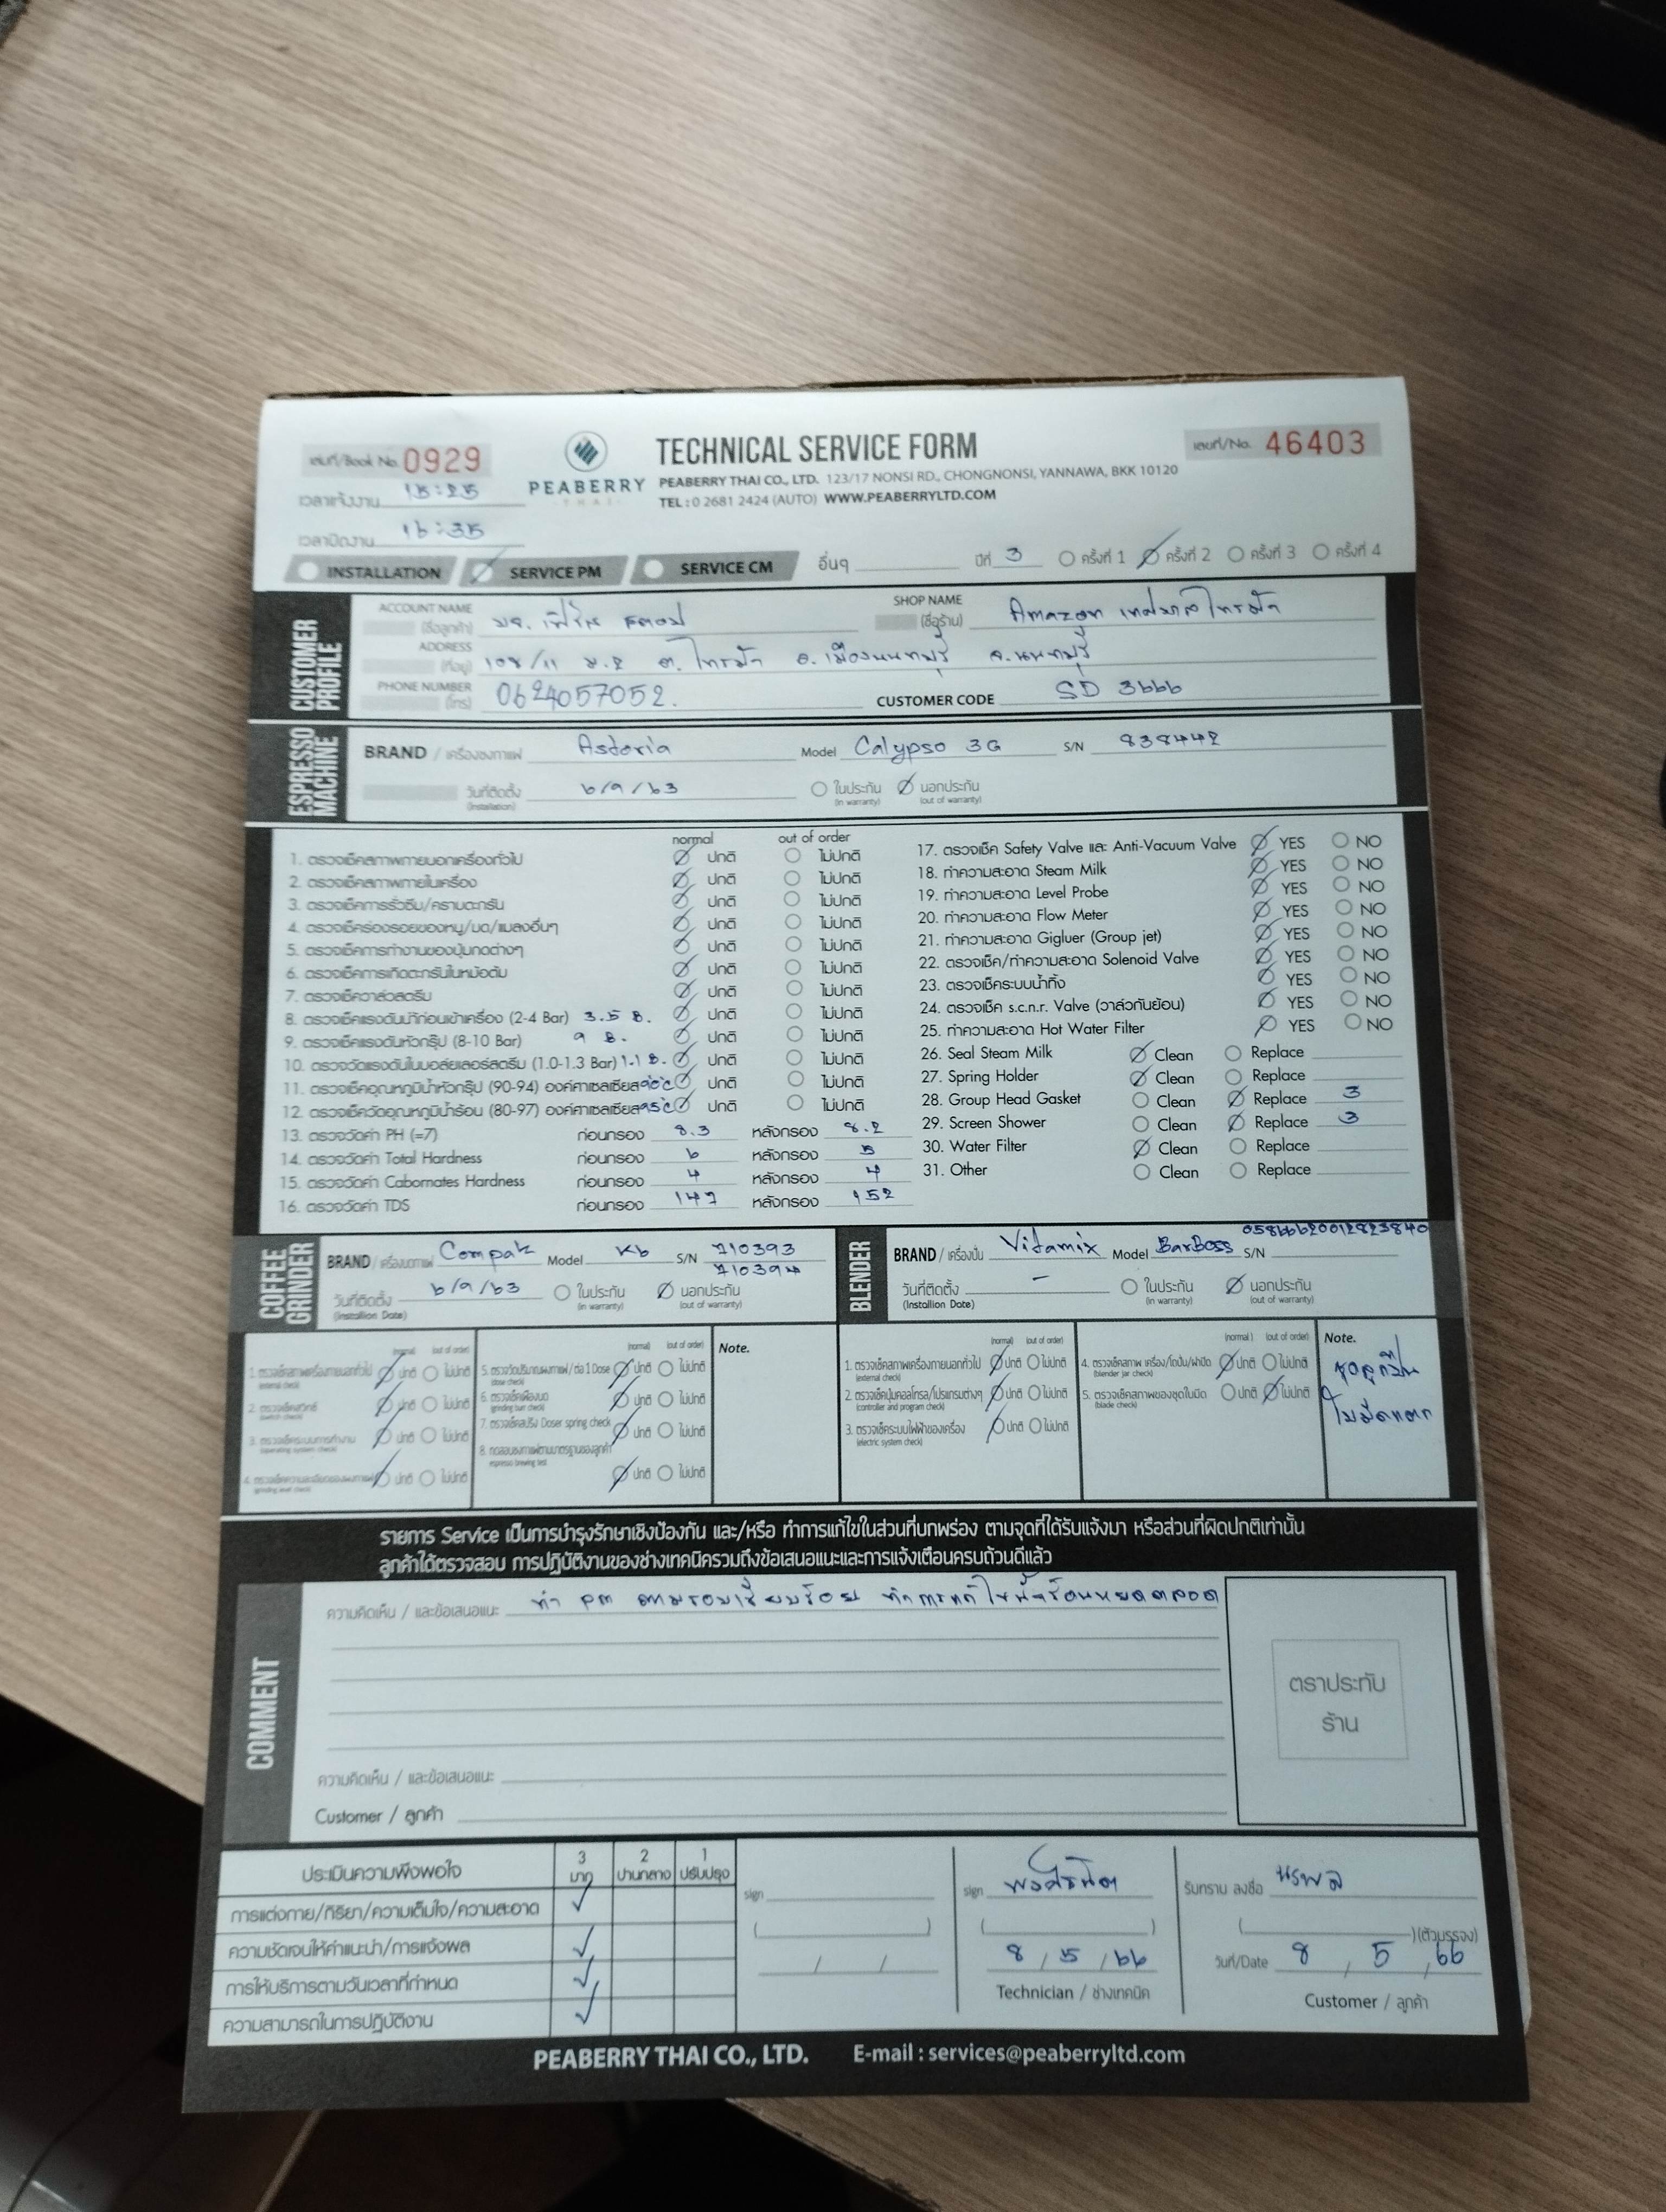 เล่มที่/Book No. 0929
TECHNICAL SERVICE FORM
เลขที่/No. 46403
PEABERRY
THAI
PEABERRY THAI CO., LTD. 123/17 NONSI RD., CHONGNONSI, YANNAWA, BKK 10120
TEL : 0 2681 2424 (AUTO) WWW.PEABERRYLTD.COM
เวลาแจ้งงาน 15:25
เวลาปิดงาน 16:35
INSTALLATION SERVICE PM SERVICE CM อื่นๆ ปีที่ 3 ครั้งที่ 1 ครั้งที่ 2 ครั้งที่ 3 ครั้งที่ 4
CUSTOMER PROFILE
ACCOUNT NAME (ชื่อลูกค้า) SHOP NAME (ชื่อร้าน) Amazon เทศบาลไทรม้า
ADDRESS (ที่อยู่) 108/11 ม.2 ต.ไทรม้า อ.เมืองนนทบุรี จ.นนทบุรี
PHONE NUMBER (โทร) 0624057052. CUSTOMER CODE SD 3666
ESPRESSO MACHINE
BRAND / เครื่องชงกาแฟ Astoria Model Calypso 3G S/N 838442
วันที่ติดตั้ง (Installation) 6/9/63 ในประกัน (in warranty) นอกประกัน (out of warranty)
normal out of order
1. ตรวจเช็คสภาพภายนอกเครื่องทั่วไป ปกติ ไม่ปกติ
2. ตรวจเช็คสภาพภายในเครื่อง ปกติ ไม่ปกติ
3. ตรวจเช็คการรั่วซึม/คราบตะกรัน ปกติ ไม่ปกติ
4. ตรวจเช็คร่องรอยของหนู/มด/แมลงอื่นๆ ปกติ ไม่ปกติ
5. ตรวจเช็คการทำงานของปุ่มกดต่างๆ ปกติ ไม่ปกติ
6. ตรวจเช็คการเกิดตะกรันในหม้อต้ม ปกติ ไม่ปกติ
7. ตรวจเช็ควาล์วสตรีม ปกติ ไม่ปกติ
8. ตรวจเช็คแรงดันน้ำก่อนเข้าเครื่อง (2-4 Bar) 3.5 B. ปกติ ไม่ปกติ
9. ตรวจเช็คแรงดันหัวกรุ๊ป (8-10 Bar) 9 B. ปกติ ไม่ปกติ
10. ตรวจวัดแรงดันในบอล์ยเลอร์สตรีม (1.0-1.3 Bar) 1.1 B. ปกติ ไม่ปกติ
11. ตรวจเช็คอุณหภูมิน้ำหัวกรุ๊ป (90-94) องศาเซลเซียส 90°C ปกติ ไม่ปกติ
12. ตรวจเช็ควัดอุณหภูมิน้ำร้อน (80-97) องศาเซลเซียส 95°C ปกติ ไม่ปกติ
13. ตรวจวัดค่า PH (=7) ก่อนกรอง 8.3 หลังกรอง 8.2
14. ตรวจวัดค่า Total Hardness ก่อนกรอง 6 หลังกรอง 5
15. ตรวจวัดค่า Cabornates Hardness ก่อนกรอง 4 หลังกรอง 4
16. ตรวจวัดค่า TDS ก่อนกรอง 147 หลังกรอง 152
17. ตรวจเช็ค Safety Valve และ Anti-Vacuum Valve YES NO
18. ทำความสะอาด Steam Milk YES NO
19. ทำความสะอาด Level Probe YES NO
20. ทำความสะอาด Flow Meter YES NO
21. ทำความสะอาด Gigluer (Group jet) YES NO
22. ตรวจเช็ค/ทำความสะอาด Solenoid Valve YES NO
23. ตรวจเช็คระบบน้ำทิ้ง YES NO
24. ตรวจเช็ค s.c.n.r. Valve (วาล์วกันย้อน) YES NO
25. ทำความสะอาด Hot Water Filter YES NO
26. Seal Steam Milk Clean Replace
27. Spring Holder Clean Replace
28. Group Head Gasket Clean Replace 3
29. Screen Shower Clean Replace 3
30. Water Filter Clean Replace
31. Other Clean Replace
COFFEE GRINDER
BRAND / เครื่องบดกาแฟ Compak Model K6 S/N 710393
710394
วันที่ติดตั้ง (Installion Date) 6/9/63 ในประกัน (in warranty) นอกประกัน (out of warranty)
BLENDER
BRAND / เครื่องปั่น Vitamix Model BarBoss S/N 05866620012823840
วันที่ติดตั้ง (Installion Date) - ในประกัน (in warranty) นอกประกัน (out of warranty)
(normal) (out of order)
1. ตรวจเช็คสภาพเครื่องภายนอกทั่วไป (external check) ปกติ ไม่ปกติ
2. ตรวจเช็คสวิทช์ (switch check) ปกติ ไม่ปกติ
3. ตรวจเช็คระบบการทำงาน (operating system check) ปกติ ไม่ปกติ
4. ตรวจเช็คความละเอียดของผงกาแฟ (grinding level check) ปกติ ไม่ปกติ
(normal) (out of order)
5. ตรวจวัดปริมาณผงกาแฟ/ต่อ 1 Dose (dose check) ปกติ ไม่ปกติ
6. ตรวจเช็คเฟืองบด (grinding burr check) ปกติ ไม่ปกติ
7. ตรวจเช็คสปริง Doser spring check ปกติ ไม่ปกติ
8. ทดสอบชงกาแฟตามมาตรฐานของลูกค้า espresso brewing test ปกติ ไม่ปกติ
Note.
(normal) (out of order)
1. ตรวจเช็คสภาพเครื่องภายนอกทั่วไป (external check) ปกติ ไม่ปกติ
2. ตรวจเช็คปุ่มคอลโทรล/โปรแกรมต่างๆ (controller and program check) ปกติ ไม่ปกติ
3. ตรวจเช็คระบบไฟฟ้าของเครื่อง (electric system check) ปกติ ไม่ปกติ
(normal) (out of order)
4. ตรวจเช็คสภาพ เครื่อง/โถปั่น/ฝาปิด (blender jar check) ปกติ ไม่ปกติ
5. ตรวจเช็คสภาพของชุดใบมีด (blade check) ปกติ ไม่ปกติ
Note.
ใบมีดแตก
รายการ Service เป็นการบำรุงรักษาเชิงป้องกัน และ/หรือ ทำการแก้ไขในส่วนที่บกพร่อง ตามจุดที่ได้รับแจ้งมา หรือส่วนที่ผิดปกติเท่านั้น
ลูกค้าได้ตรวจสอบ การปฏิบัติงานของช่างเทคนิครวมถึงข้อเสนอแนะและการแจ้งเตือนครบถ้วนดีแล้ว
COMMENT
ความคิดเห็น / และข้อเสนอแนะ ทำ PM ตามรอบเรียบร้อย ทำการแก้ไขน้ำร้อนหยดตลอด
ตราประทับ
ร้าน
ความคิดเห็น / และข้อเสนอแนะ
Customer / ลูกค้า
ประเมินความพึงพอใจ 3 มาก 2 ปานกลาง 1 ปรับปรุง
การแต่งกาย/กิริยา/ความเต็มใจ/ความสะอาด ✓
ความชัดเจนให้คำแนะนำ/การแจ้งผล ✓
การให้บริการตามวันเวลาที่กำหนด ✓
ความสามารถในการปฏิบัติงาน ✓
sign
( )
/ /
sign
( )
8 / 5 / 66
Technician / ช่างเทคนิค
รับทราบ ลงชื่อ นรพล
( ) (ตัวบรรจง)
วันที่/Date 8 , 5 , 66
Customer / ลูกค้า
PEABERRY THAI CO., LTD. E-mail : services@peaberryltd.com